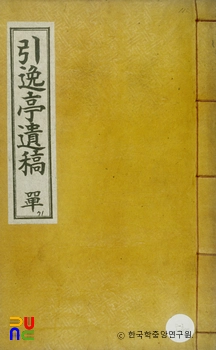 引逸亭遺稿 單
ⓒ 한국학중앙연구원